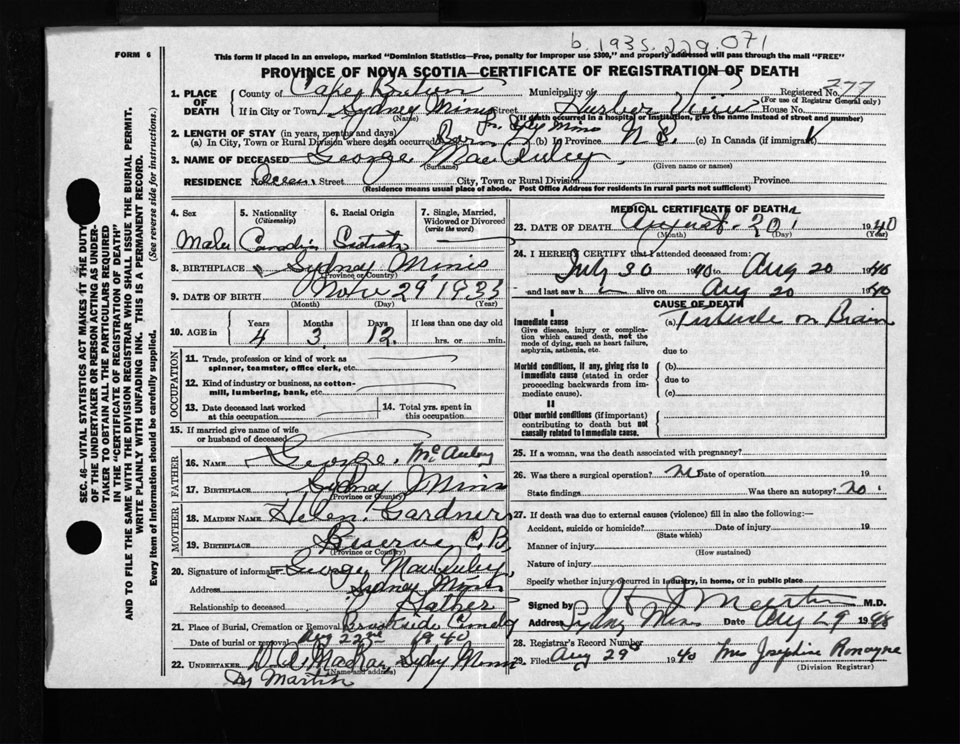 b. 1935. 229.071
FORM 6
This form if placed in an envelope, marked "Dominion Statistics—Free, penalty for improper use $300," and properly addressed will pass through the mail "FREE"
PROVINCE OF NOVA SCOTIA—CERTIFICATE OF REGISTRATION OF DEATH
1. PLACE OF DEATH
County of Cape Breton Municipality of Registered No. 277
(For use of Registrar General only)
If in City or Town Sydney Mines Street Harbor View House No.
(Name) (If death occurred in a hospital or institution, give the name instead of street and number)
2. LENGTH OF STAY (in years, months and days)
(a) In City, Town or Rural Division where death occurred Born in Sy Mines (b) In Province N.S. (c) In Canada (if immigrant)
3. NAME OF DECEASED George MacAuley
(Surname) (Given name or names)
RESIDENCE No. Ocean Street City, Town or Rural Division Province
(Residence means usual place of abode. Post Office Address for residents in rural parts not sufficient)
4. Sex
5. Nationality (Citizenship)
6. Racial Origin
7. Single, Married, Widowed or Divorced (write the word)
Male
8. BIRTHPLACE Sydney Mines
(Province or Country)
9. DATE OF BIRTH Nov 29 1935
(Month) (Day) (Year)
10. AGE in
Years Months Days If less than one day old
4 3. 12. hrs. or min.
OCCUPATION
11. Trade, profession or kind of work as spinner, teamster, office clerk, etc.
12. Kind of industry or business, as cotton-mill, lumbering, bank, etc.
13. Date deceased last worked at this occupation
14. Total yrs. spent in this occupation.
15. If married give name of wife or husband of deceased
FATHER
16. NAME George McAuley
17. BIRTHPLACE Sydney Mines
(Province or Country)
MOTHER
18. MAIDEN NAME Helen Gardner
19. BIRTHPLACE Reserve C.B.
(Province or Country)
20. Signature of informant George MacAuley
Address Sydney Mines
Relationship to deceased Father
21. Place of Burial, Cremation or Removal Brookside Cemetery
Date of burial or removal Aug 22nd 1940
22. UNDERTAKER Sydney Mines
(Name and address)
By Martin
MEDICAL CERTIFICATE OF DEATH
23. DATE OF DEATH August 20 1940
(Month) (Day) (Year)
24. I HEREBY CERTIFY that I attended deceased from:
July 30 1940 to Aug 20 1940
and last saw h alive on Aug 20 1940
CAUSE OF DEATH
I
Immediate cause
Give disease, injury or complication which caused death, not the mode of dying, such as heart failure, asphyxia, asthenia, etc.
(a) on Brain
due to
Morbid conditions, if any, giving rise to immediate cause (stated in order proceeding backwards from immediate cause).
(b)
due to
(c)
II
Other morbid conditions (if important) contributing to death but not causally related to immediate cause.
25. If a woman, was the death associated with pregnancy?
26. Was there a surgical operation? no Date of operation 19
State findings Was there an autopsy? no
27. If death was due to external causes (violence) fill in also the following:—
Accident, suicide or homicide? Date of injury 19
(State which)
Manner of injury
(How sustained)
Nature of injury
Specify whether injury occurred in industry, in home, or in public place
Signed by M.D.
Address Sydney Mines Date Aug 29 19
28. Registrar's Record Number
29. Filed Aug 29 1940 Mrs Josephine Ronayne
(Division Registrar)
SEC. 46—VITAL STATISTICS ACT MAKES IT THE DUTY OF THE UNDERTAKER OR PERSON ACTING AS UNDERTAKER TO OBTAIN ALL THE PARTICULARS REQUIRED IN THE "CERTIFICATE OF REGISTRATION OF DEATH"
AND TO FILE THE SAME WITH THE DIVISION REGISTRAR WHO SHALL ISSUE THE BURIAL PERMIT.
WRITE PLAINLY WITH UNFADING INK. THIS IS A PERMANENT RECORD.
Every item of Information should be carefully supplied. (See reverse side for instructions.)